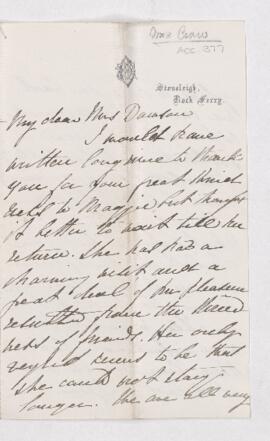 Mrs Crow
ACC. 377
Stoneleigh,
Rock Ferry.
My dear Mrs Dawson
I would have
written long since to thank
you for your great kind
ness to Maggie, but thought
it better to wait till her
return. She has had a
charming visit and a
great deal of pleasure
resulted from the kind
ness of friends. Her only
regret seems to be that
she could not stay
longer. We are all very